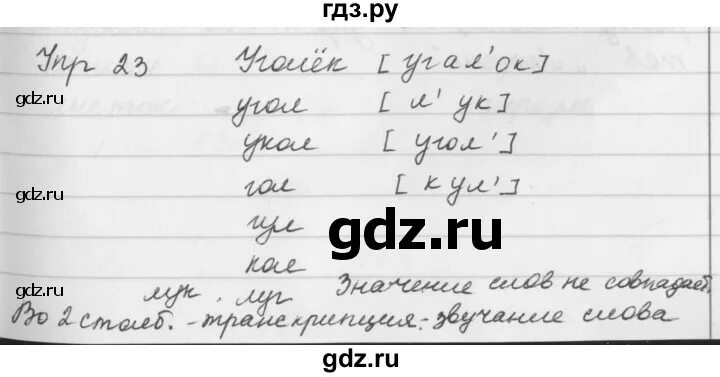 гдз.ру
Упр 23 Уголёк [угал'ок]
gdz.ru
угол [л'ук]
gdz.ru
укол [угол']
gdz.ru
гол [кул']
gdz.ru
gdz.ru
гул
gdz.ru
кол
лук, луг Значение слов не совпадает.
Во 2 столб. - транскрипция - звучание слова
gdz.ru
gdz.ru